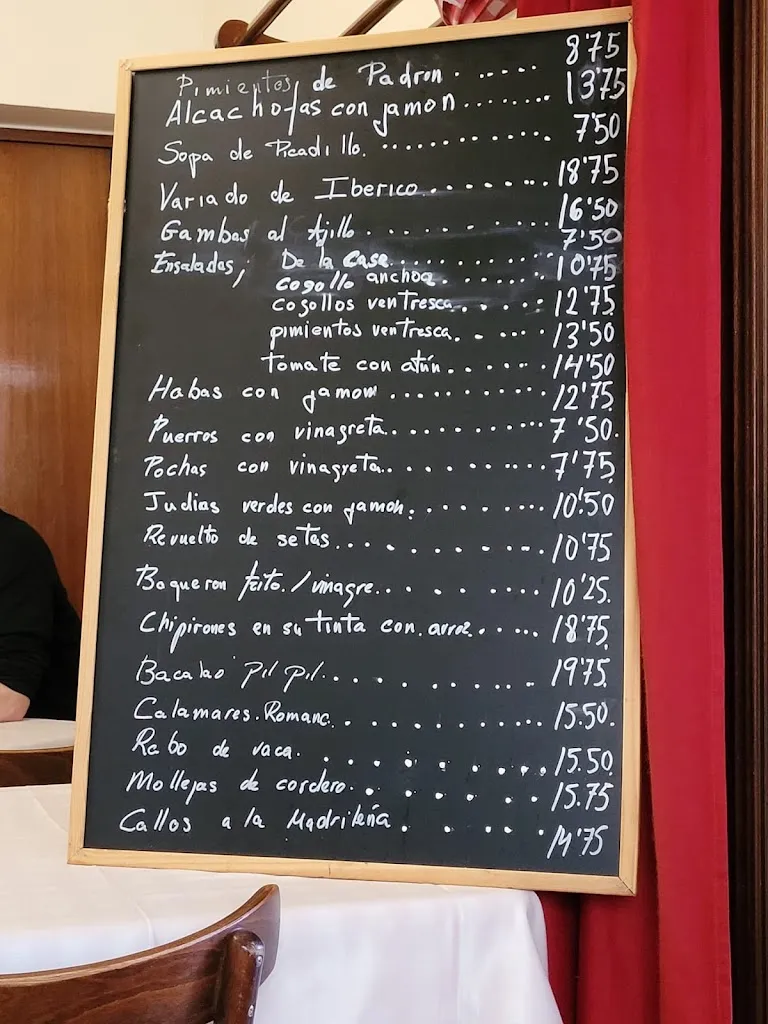 Pimientos de Padron. ..... 8'75
Alcachofas con jamon........ 13'75
Sopa de Picadillo. ............. 7'50
Variado de Iberico.......... 18'75
Gambas al Ajillo. ......... 16'50
Ensaladas, De la Casa........... 7'50
cogollo anchoa. ....... 10'75
cogollos ventresca....... 12'75
pimientos ventresca. ...... 13'50
tomate con atún....... 14'50
Habas con jamon ............. 12'75
Puerros con vinagreta........... 7'50.
Pochas con vinagreta........... 7'75
Judias verdes con jamon. ........ 10'50
Revuelto de setas............ 10'75
Boqueron frito./vinagre......... 10'25.
Chipirones en su tinta con arroz...... 18'75
Bacalao Pil pil........... 19'75
Calamares.Romana............ 15.50.
Rabo de vaca. ........... 15.50
Mollejas de cordero. ...... 15.75
Callos a la Madrileña. ..... 14'75